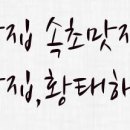 집 속초맛
집,황태해